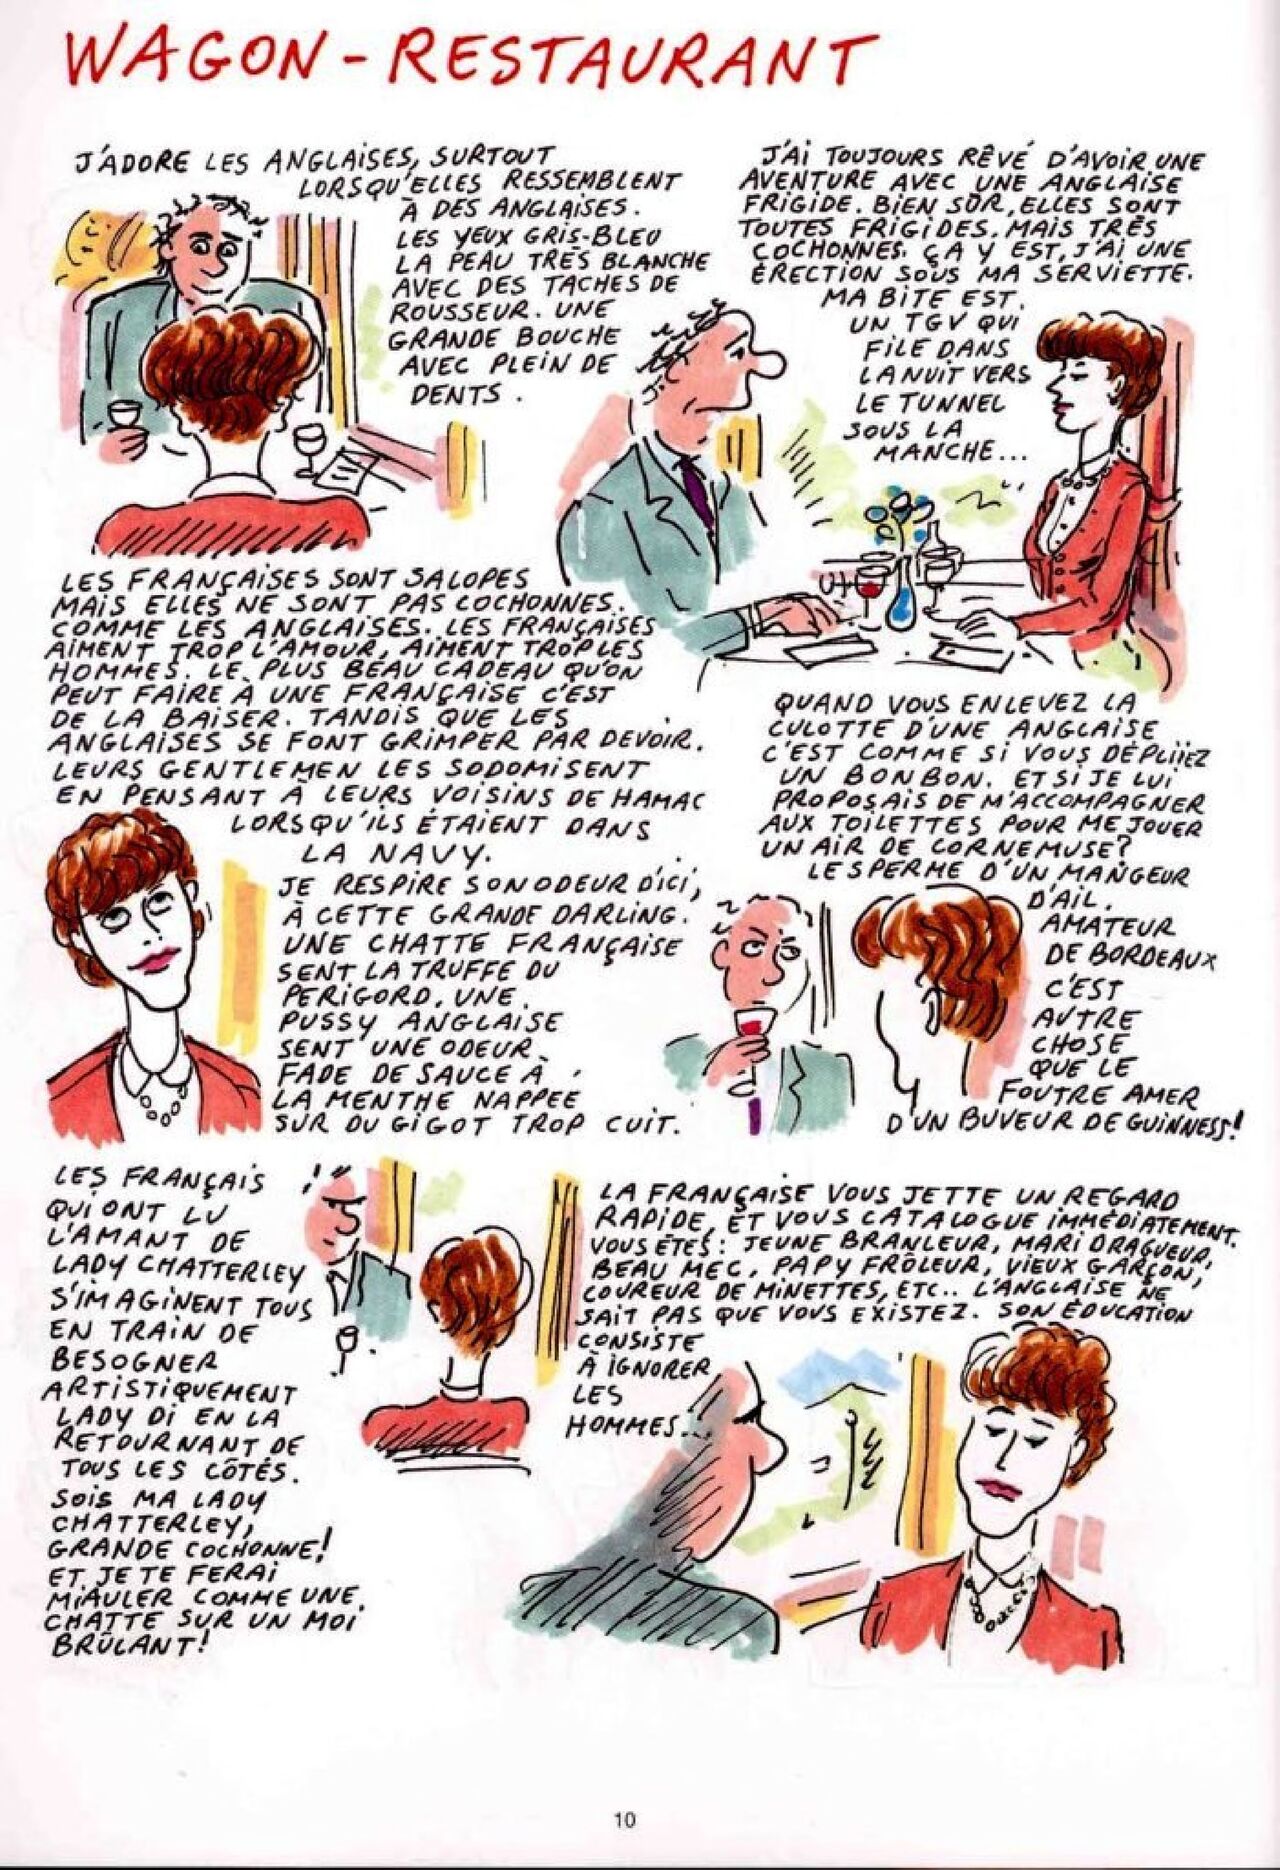 WAGON-RESTAURANT
J'ADORE LES ANGLAISES, SURTOUT
LORSQU'ELLES RESSEMBLENT
À DES ANGLAISES.
LES YEUX GRIS-BLEU
LA PEAU TRÈS BLANCHE
AVEC DES TACHES DE
ROUSSEUR. UNE
GRANDE BOUCHE
AVEC PLEIN DE
DENTS.
J'AI TOUJOURS RÊVÉ D'AVOIR UNE
AVENTURE AVEC UNE ANGLAISE
FRIGIDE. BIEN SÛR, ELLES SONT
TOUTES FRIGIDES. MAIS TRÈS
COCHONNES. ÇA Y EST, J'AI UNE
ÉRECTION SOUS MA SERVIETTE.
MA BITE EST
UN TGV QUI
FILE DANS
LA NUIT VERS
LE TUNNEL
SOUS LA
MANCHE...
LES FRANÇAISES SONT SALOPES
MAIS ELLES NE SONT PAS COCHONNES
COMME LES ANGLAISES. LES FRANÇAISES
AIMENT TROP L'AMOUR, AIMENT TROP LES
HOMMES. LE PLUS BEAU CADEAU QU'ON
PEUT FAIRE À UNE FRANÇAISE C'EST
DE LA BAISER. TANDIS QUE LES
ANGLAISES SE FONT GRIMPER PAR DEVOIR.
LEURS GENTLEMEN LES SODOMISENT
EN PENSANT À LEURS VOISINS DE HAMAC
LORSQU'ILS ÉTAIENT DANS
LA NAVY.
JE RESPIRE SON ODEUR D'ICI,
À CETTE GRANDE DARLING.
UNE CHATTE FRANÇAISE
SENT LA TRUFFE DU
PERIGORD. UNE
PUSSY ANGLAISE
SENT UNE ODEUR
FADE DE SAUCE À
LA MENTHE NAPPÉE
SUR DU GIGOT TROP CUIT.
QUAND VOUS ENLEVEZ LA
CULOTTE D'UNE ANGLAISE
C'EST COMME SI VOUS DÉPLIIEZ
UN BONBON. ET SI JE LUI
PROPOSAIS DE M'ACCOMPAGNER
AUX TOILETTES POUR ME JOUER
UN AIR DE CORNEMUSE?
LE SPERME D'UN MANGEUR
D'AIL.
AMATEUR
DE BORDEAUX
C'EST
AUTRE
CHOSE
QUE LE
FOUTRE AMER
D'UN BUVEUR DE GUINNESS!
LES FRANÇAIS
QUI ONT LU
L'AMANT DE
LADY CHATTERLEY
S'IMAGINENT TOUS
EN TRAIN DE
BESOGNER
ARTISTIQUEMENT
LADY DI EN LA
RETOURNANT DE
TOUS LES CÔTÉS.
SOIS MA LADY
CHATTERLEY,
GRANDE COCHONNE!
ET JE TE FERAI
MIAULER COMME UNE
CHATTE SUR UN MOI
BRÛLANT!
LA FRANÇAISE VOUS JETTE UN REGARD
RAPIDE, ET VOUS CATALOGUE IMMÉDIATEMENT.
VOUS ÊTES: JEUNE BRANLEUR, MARI DRAGUEUR,
BEAU MEC, PAPY FRÔLEUR, VIEUX GARÇON,
COUREUR DE MINETTES, ETC.. L'ANGLAISE NE
SAIT PAS QUE VOUS EXISTEZ. SON ÉDUCATION
CONSISTE
À IGNORER
LES
HOMMES...
10